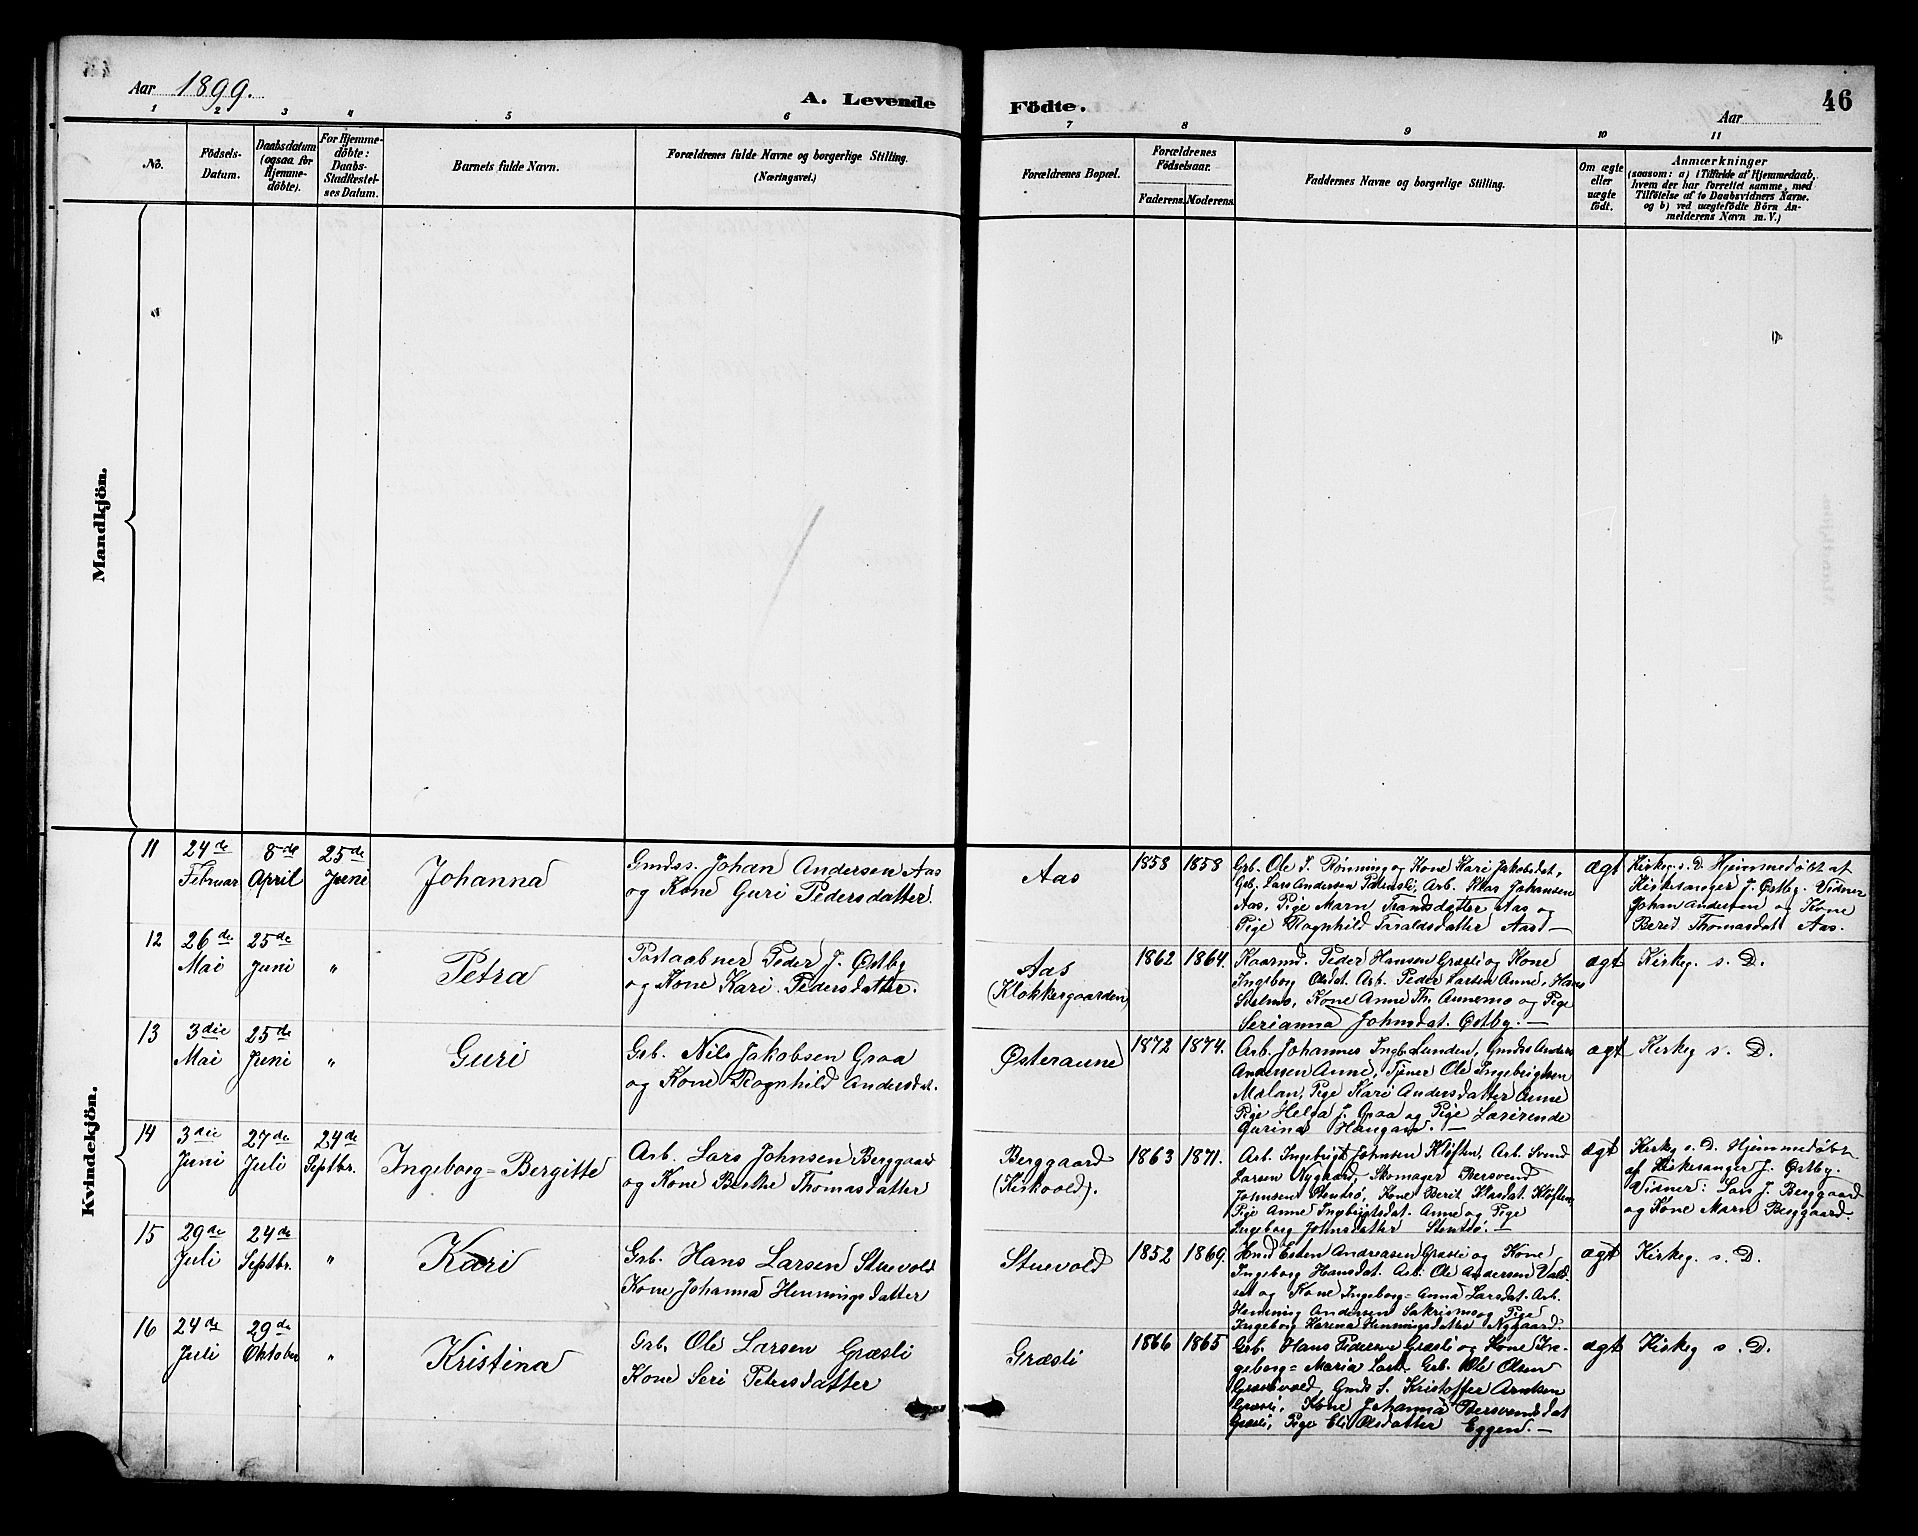 Aar 1899.
A. Levende
Födte.
46
Aar
1
2
3
4
5
6
7
8
9
10
11
No.
Födsels-
Datum.
Daabsdatum
(ogsaa for
Hjemme-
döbte).
For Hjemme-
döbte:
Daabs-
Stadfæstel-
ses Datum.
Barnets fulde Navn.
Forældrenes fulde Navne og borgerlige Stilling.
(Næringsvei.)
Forældrenes Bopæl.
Forældrenes
Födselsaar.
Faderens.
Moderens.
Faddernes Navne og borgerlige Stilling.
Om ægte
eller
uægte
födt.
Anmærkninger
(saasom: a) i Tilfælde af Hjemmedaab,
hvem der har forrettet samme, med
Tilföielse af to Daabsvidners Navne.
og b) ved uægtefödte Börn An-
melderens Navn m. V.)
Mandkjön.
Kvindekjön.
11
24de
Februar
8de
April
25de
Juni
Johanna
Gmdss. Johan Andersen Aas
og Kone Guri Pedersdatter.
Aas
1858
1858
Grb. Ole J. Rønning og Kone Kari Jakobsdat,
Grb. Lars Andersen Arb. Klas Johansen
Aas, Pige Marn Aas og
Pige Ragnhild Taraldsdatter Aas —
ægt
Kirkeg. s. D. Hjemmedøbt af
Kirkesanger J. Østby. Vidner
Johan Andersen og Kone
Berit Thomasdat Aas.
12
26de
Mai
25de
Juni
"
Petra
Postaabner Peder J. Østby
og Kone Kari Pedersdatter.
Aas
(Klokkergaarden)
1862
1864
Kaarmd. Peder Hansen Græsli og Kone
Ingeborg Olsdt. Arb. Peder Larsen Aune, Hans
Kone Anne Th. Aunemo og Pige
Serianna Johnsdat. Østby. —
ægt
Kirkeg. s. D.
13
3die
Mai
25de
Juni
"
Guri
Grb. Nils Jakobsen Graa
og Kone Ragnhild Andersdat.
Østeraune
1872
1874.
Arb. Johannes Ingb. Lunden, Gmdss Anders
Andersen Aune, Tjener Ole Ingebrigtsen
Moian, Pige Kari Andersdatter Aune
Pige Helga J. Graa og Pige
Gurina Haugan. —
ægt
Kirkeg s. D.
14
3die
Juni
27de
Juli
24de
Septbr.
Ingeborg=Bergitte
Arb. Lars Johnsen Berggaard
og Kone Berthe Thomasdatter
Berggaard
(Kirkvold).
1863
1871.
Arb. Ingebrigt Johnsen Kløften, Arb. Svend
Larsen Nygaard, Skomager Bersvend
Johnsen Stentrø, Kone Berit Klasdat. Kløften,
Pige Anne Ingbrigtsdat. Aune og Pige
Ingeborg Johnsdatter Stentrø.
ægt
Kirkeg s. D. Hjemmedøbt
af Kirkesanger J. Østby.
Vidner: Lars J. Berggaard
og Kone Marn Berggaard.
15
29de
Juli
24de
Septbr.
"
Kari
Grb. Hans Larsen Stuevold
Kone Johanna Henningsdatter
Stuevold
1852
1869.
Esten Andreasen Græsli og Kone
Ingeborg Hansdat. Arb. Ole Andersen Vald-
set og Kone Ingeborg=Anna Larsdat. Arb.
Henning Andersen Sakrismo og Pige
Ingeborg Karina Henningsdatter Nygaard.
ægt
Kirkeg. s. D.
16
24de
Juli
29de
Oktober
"
Kristina
Grb. Ole Larsen Græsli
Kone Seri Petersdatter
Græsli
1866
1865
Grb. Hans Pedersen Græsli og Kone In-
geborg=Maria Grb. Ole Olsen
Græslivold, Gmds S. Kristoffer Arntsen
Græsli, Kone Johanna Bersvendsdat
Græsli, Pige Eli Olsdatter Eggen. —
ægt
Kirkeg s. D.